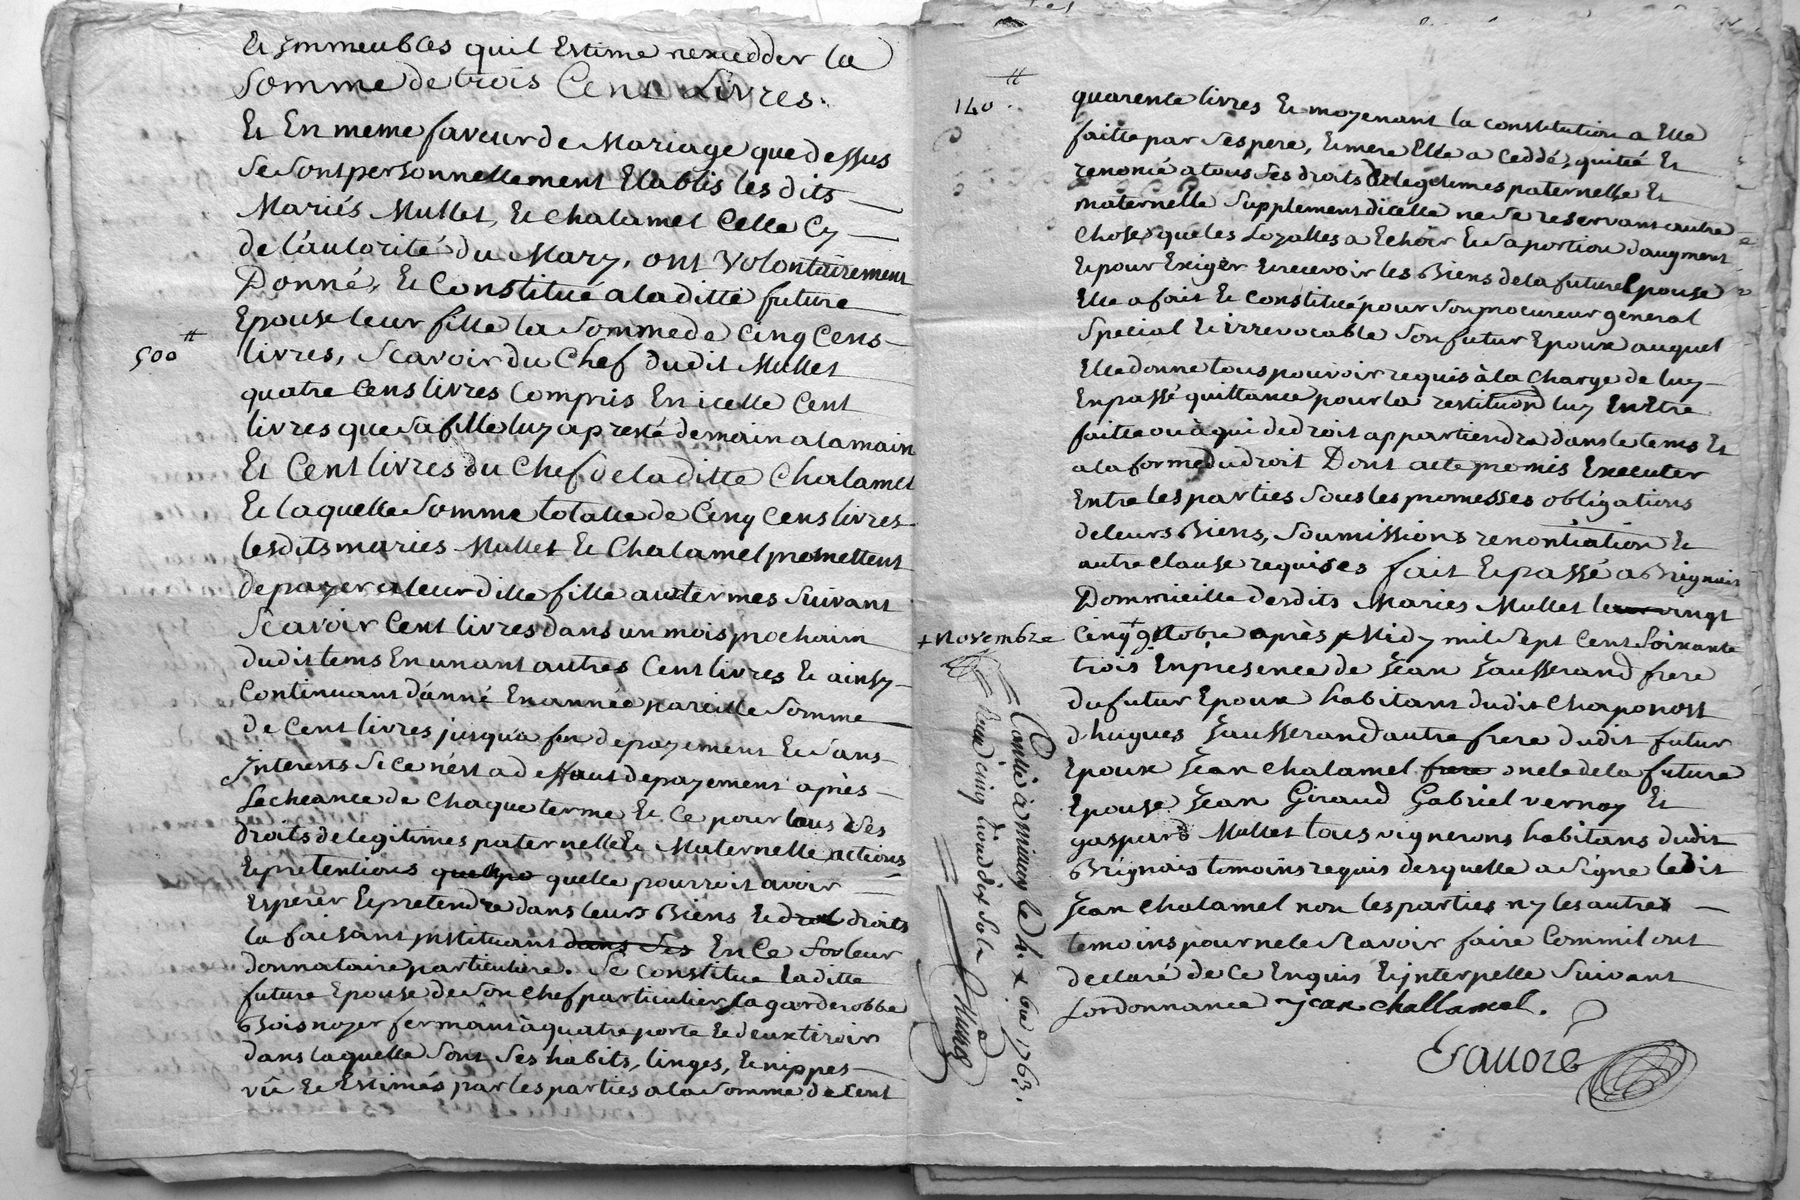 Et Jmmeubles quil Estime nexcedder la
Somme de trois Cent Livres.
Et En meme faveur de Mariage que dessus
Se Sont personnellement Etablis les dits
Mariés Mullet, Et Chalamel Celle Cy
de l'autorité du Mary, ont Volontairement
Donné, Et Constitué a la ditte future
Epouse leur fille la Somme de Cinq Cens
500 ₶ livres, Scavoir du Chef dudit Mullet
quatre Cens livres Compris En icelle Cent
livres que Sa fille luy a preté de main a la main
Et Cent livres du Chef de la ditte Chalamel
Et laquelle Somme totalle de Cinq Cens livres
lesdits mariés Mullet Et Chalamel promettent
de payer a leur ditte fille aux termes Suivant
Scavoir Cent livres dans un mois prochain
dudit tems En un ant autres Cent livres Et ainsy
Continuant d'anné En année pareille Somme
de Cent livres jusqu'a fin de payement Et Sans
Jnterests Si ce n'est a deffaut de payement après
Lecheance de Chaque terme Et Ce pour tous Ses
droits de legitimes paternelle Et Maternelle actions
Et pretentions quelle pourroit avoir
Esperer Et pretendre dans leurs Biens Et droits
la faisant Jnstituant dans Ses En Ce Sor leur
donnataire particuliere. Se Constitue Laditte
future Epouse de Son Chef particulier Sa garderobbe
Bois noyer fermant à quatre porte Et deux tiroir
dans laquelle Sont Ses habits, linges, Et nippes
vû Et Estimés par les parties a la Somme de Cent
140 ₶ quarente livres Et moyenant la constitution a Elle
faitte par Ses pere, Et mere Elle a Ceddé, quitté Et
renoncé a tous Ses droits De legitimes paternelle, Et
maternelle Supplement dicelle ne Se reservant autre
Choses que les Loyalles a Echoir Et Sa portion d'augment
Et pour Exiger Et recevoir les Biens de la future Epouse
Elle a fait Et Constitué pour Son procureur general
Special Et irrevocable Son futur Epoux auquel
Elle donne tous pouvoir requis à la Charge de luy
En passé quittance pour la restitution luy En Etre
faitte ou à qui de droit appartiendra dans le tems Et
a la forme du droit Dont acte promis Executer
Entre les parties Sous les promesses obligations
de leurs Biens, Soumissions renontiation Et
autre Clause requises fait Et passé a Brignais
Dommicille desdits Mariés Mullet leur vingt
+ Novembre Cinq + octobre après Midy mil Sept Cent Soixante
trois En presence de Jean Jausserand frere
du futur Epoux habitant dudit Chaponost
d'hugues Jausserand autre frere dudit futur
Epoux Jean Chalamel frere oncle de la future
Epouse Jean Giraud Gabriel vernay Et
gaspard Mullet tous vignerons habitans dudit
Brignais temoins requis desquelle a Signé ledit
Jean Chalamel non les parties ny les autres
temoins pour ne le Scavoir faire Comm'il ont
declaré de Ce Enquis Et Jnterpellé Suivant
Lordonnance Jean Challamel.